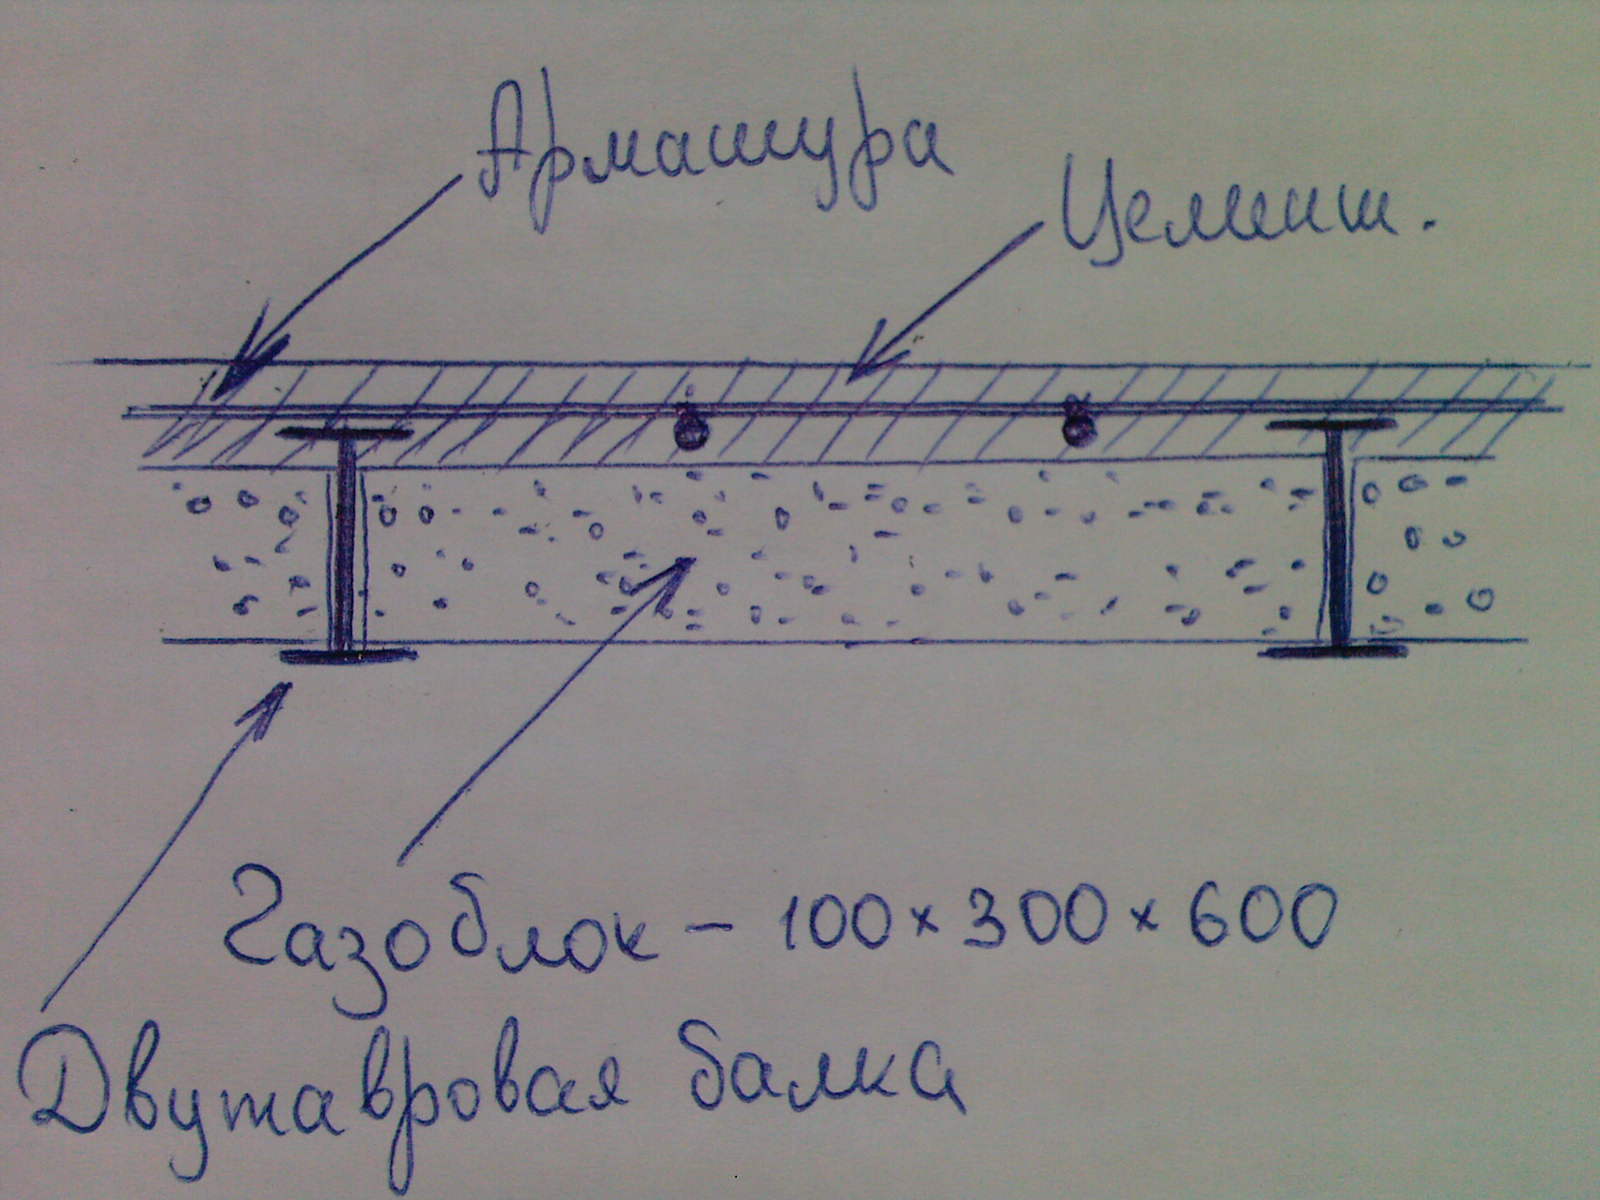 Арматура
Цемент.
Газоблок - 100×300×600
Двутавровая балка